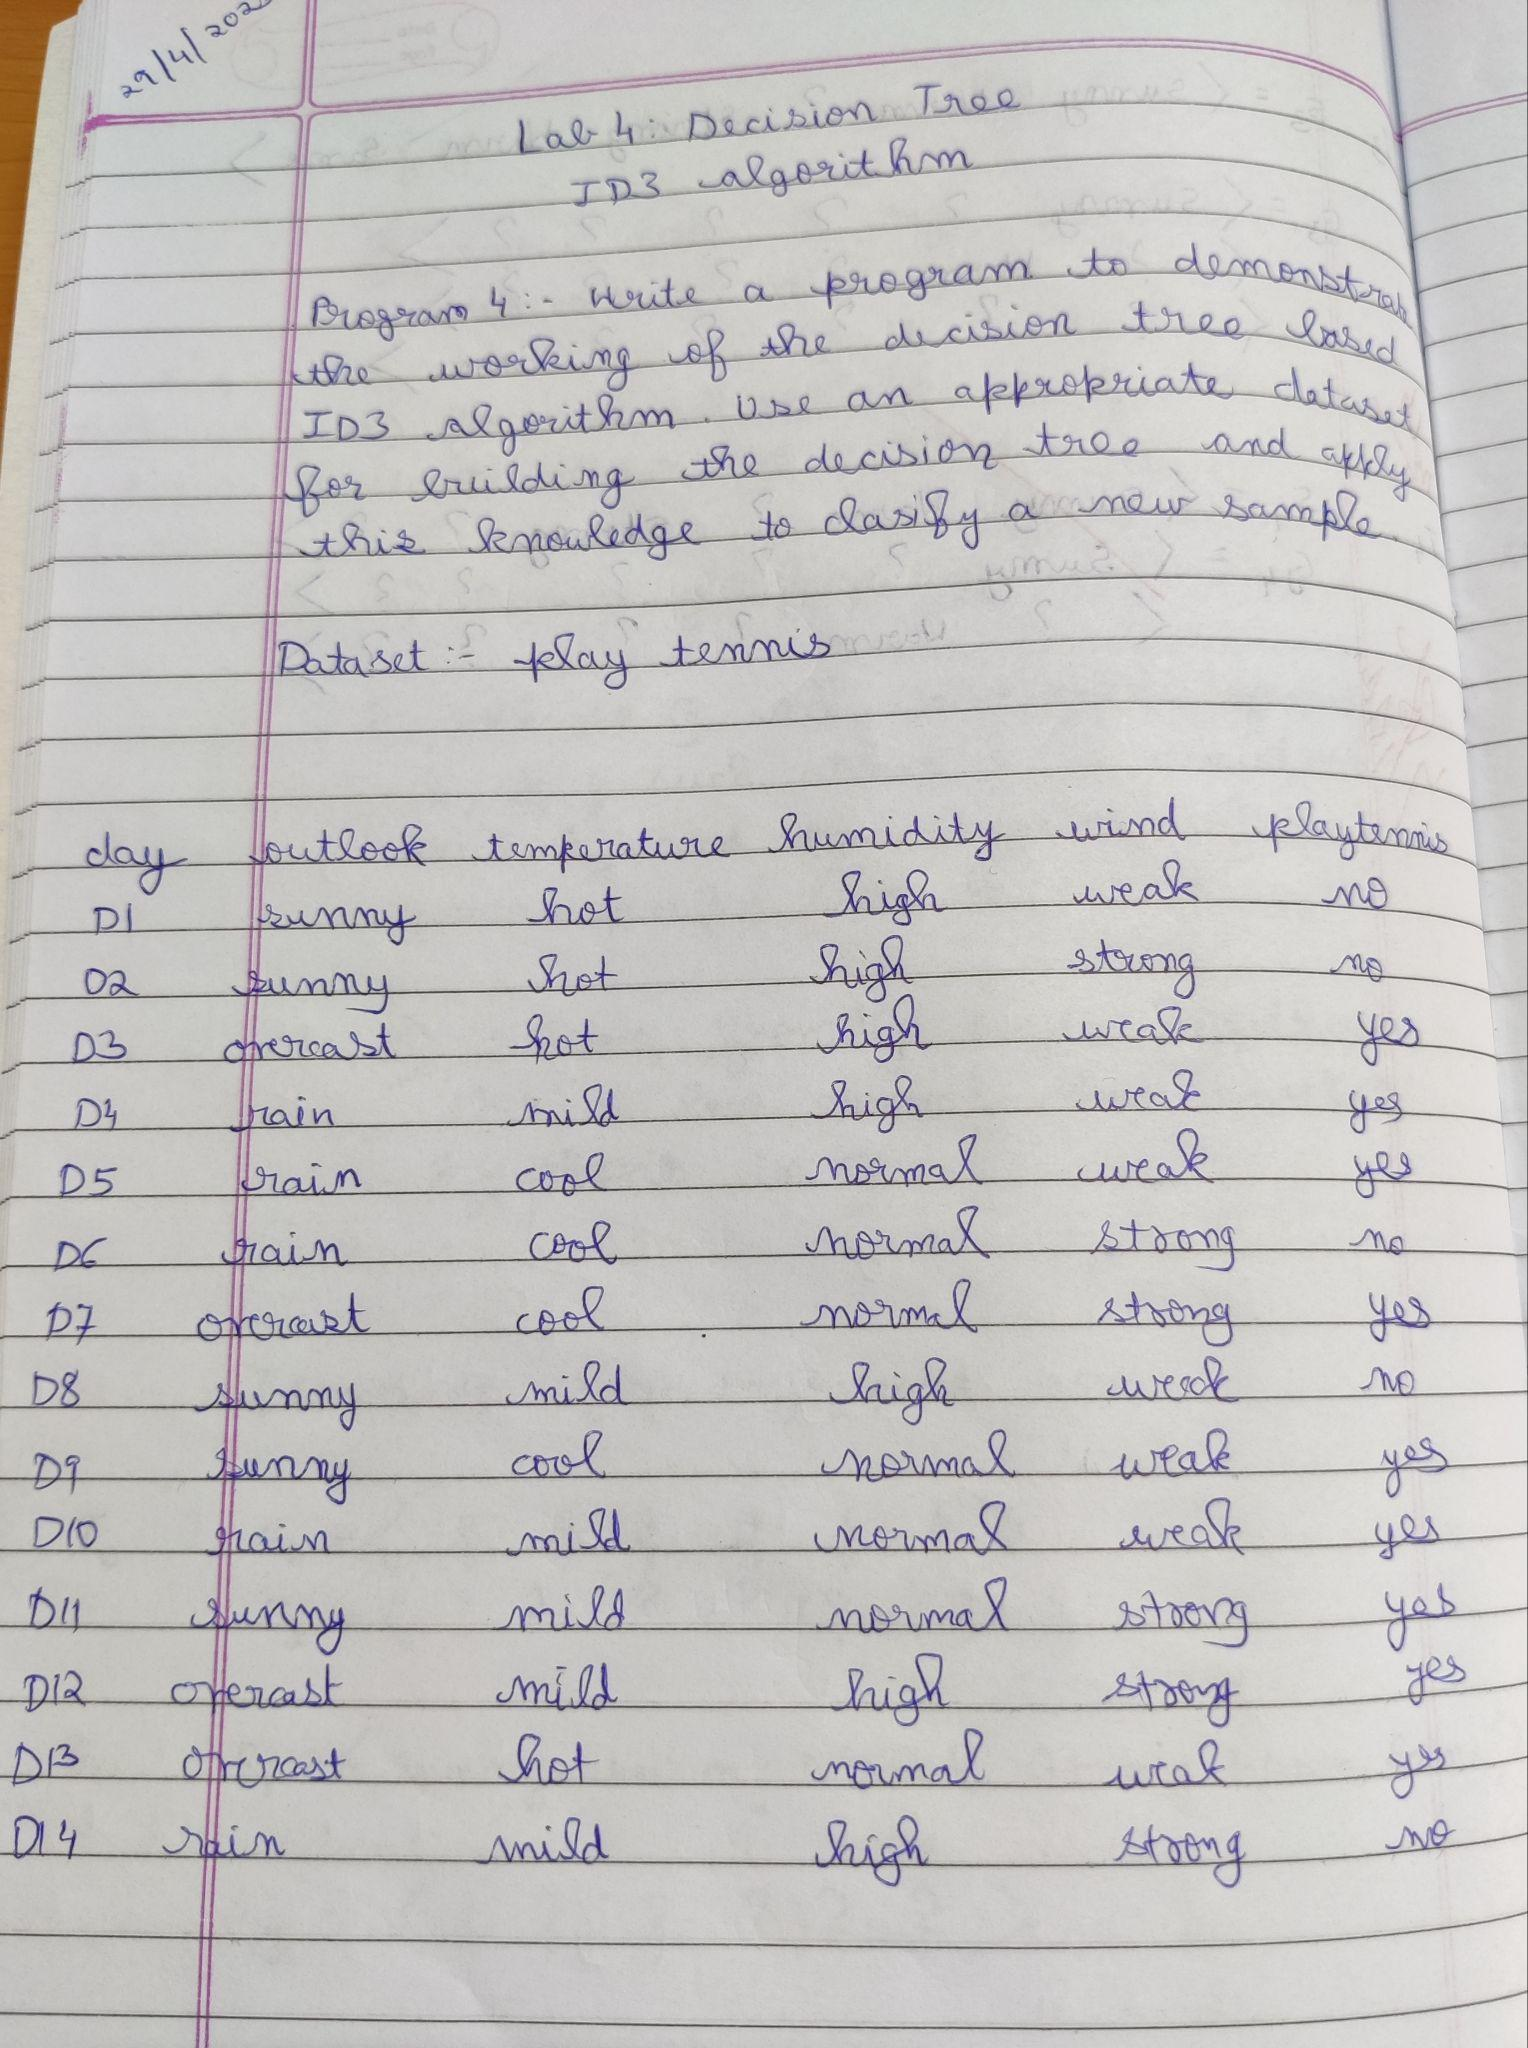 29/4/202
Lab 4: Decision Tree
ID3 algorithm
Program 4 :- Write a program to demonstrate
the working of the decision tree based
ID3 algorithm. Use an appropriate dataset
for building the decision tree and apply
this knowledge to clasify a new sample.
Dataset :- play tennis
day outlook temperature humidity wind playtennis
D1 sunny hot high weak no
D2 sunny hot high strong no
D3 overcast hot high weak yes
D4 rain mild high weak yes
D5 rain cool normal weak yes
D6 rain cool normal strong no
D7 overcast cool normal strong yes
D8 sunny mild high weak no
D9 sunny cool normal weak yes
D10 rain mild normal weak yes
D11 sunny mild normal strong yes
D12 overcast mild high strong yes
D13 overcast hot normal weak yes
D14 rain mild high strong no